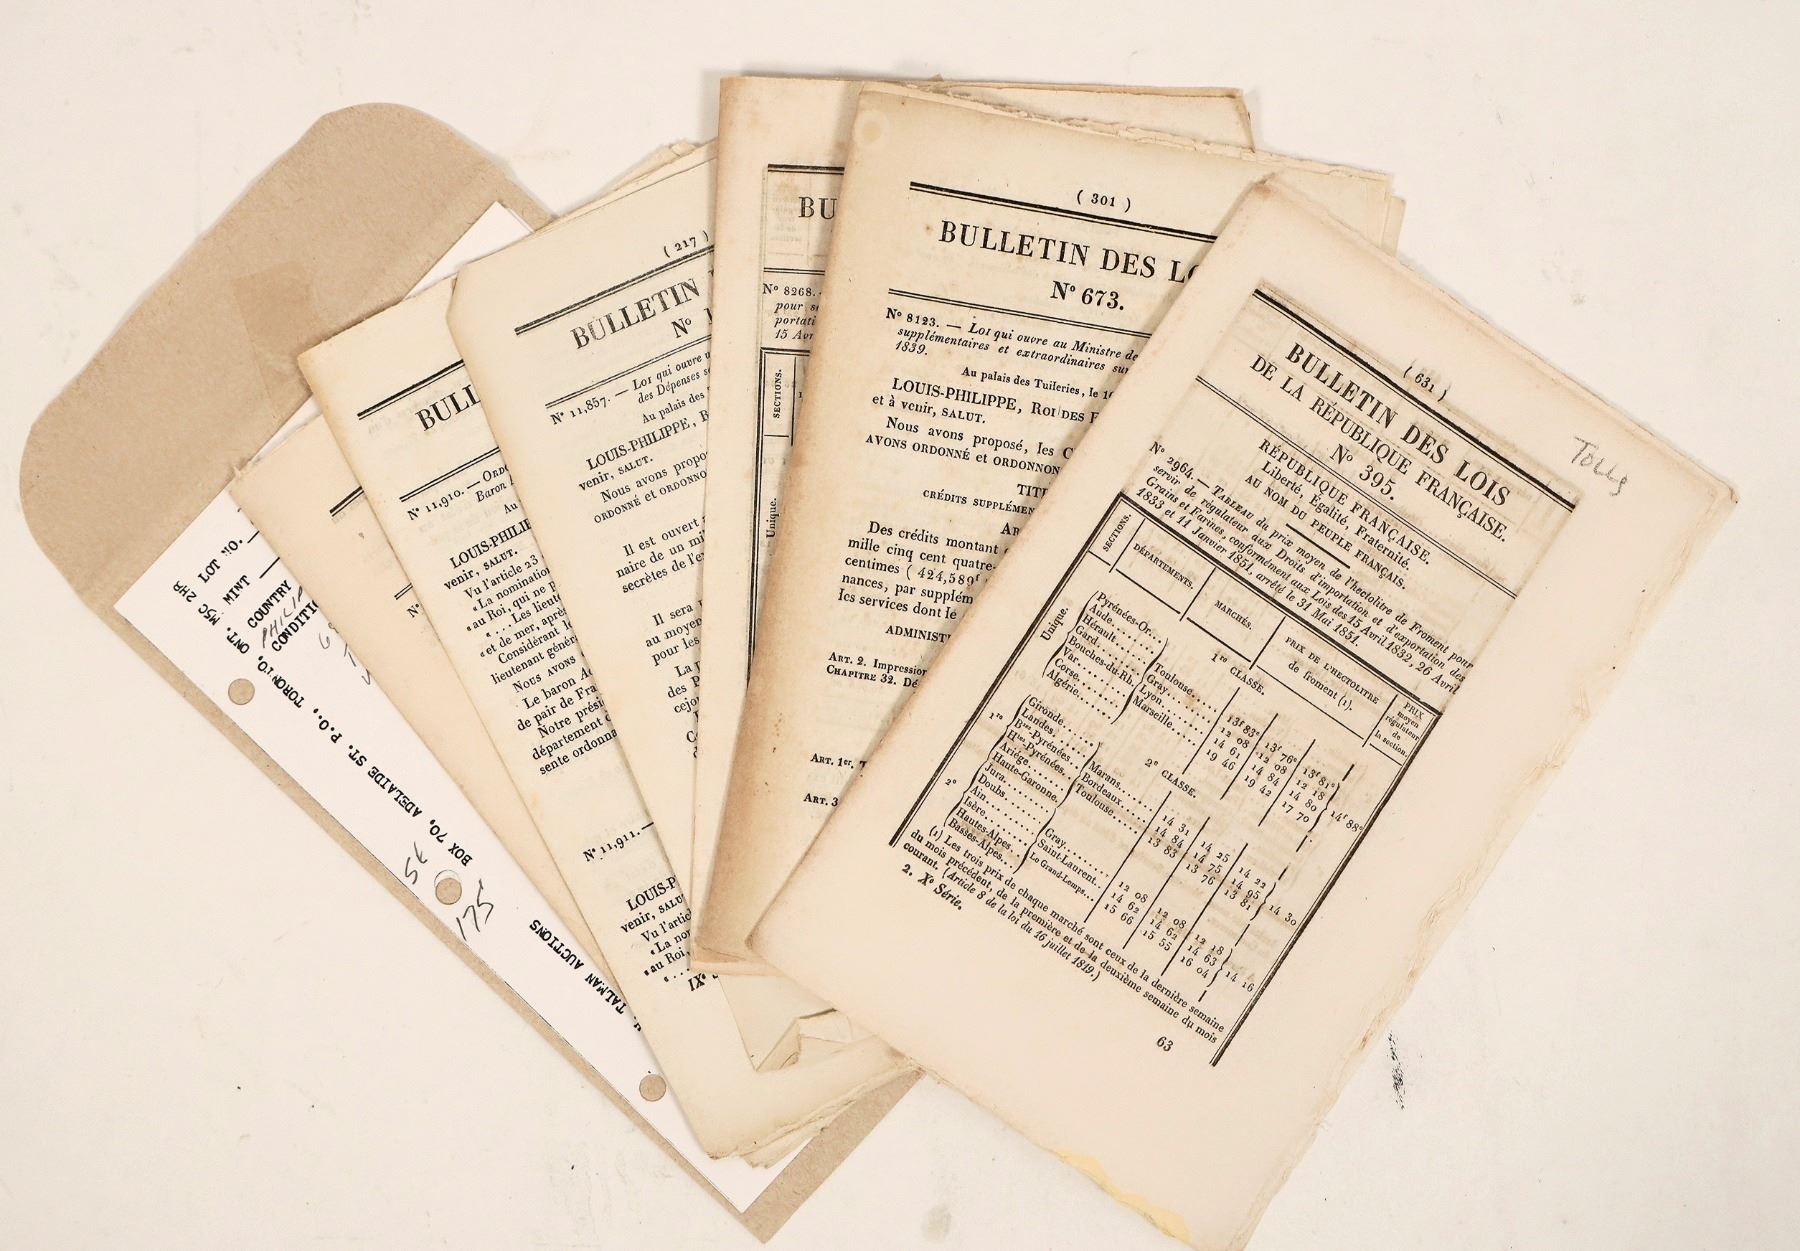 LOT NO.
MINT
COUNTRY
PHILIP
CONDITI
TALMAN AUCTIONS
BOX 70, ADELAIDE ST. P.O., TORONTO, ONT. M5C 2H8
5k
175
BULL
N° 11,910. — ORDO
Baron A
Au
LOUIS-PHILI
venir, SALUT.
Vu l'article 23
«La nomination
«au Roi, qui ne p
«... Les lieute
«et de mer, aprè
Considérant le
lieutenant génér
NOUS AVONS
Le baron A
de pair de Fra
Notre prési
département d
sente ordonna
N° 11,911. —
LOUIS-P
venir, SALU
Vu l'artic
«La no
«au Roi,
«...
IX°
( 217 )
BULLETIN
N° 1
N° 11,857. — LOI qui ouvre u
des Dépenses se
Au palais des
LOUIS-PHILIPPE, R
venir, SALUT.
Nous avons propo
ORDONNÉ et ORDONNO
Il est ouvert
naire de un mil
secrètes de l'ex
Il sera
au moyen
pour les
La p
des P
cejou
BU
N° 8268. —
pour se
portati
15 Avr
SECTIONS.
Unique.
( 301 )
BULLETIN DES LO
N° 673.
N° 8123. — LOI qui ouvre au Ministre de
supplémentaires et extraordinaires sur
1839.
Au palais des Tuileries, le 10
LOUIS-PHILIPPE, ROI DES F
et à venir, SALUT.
Nous avons proposé, les C
AVONS ORDONNÉ et ORDONNON
TITR
CRÉDITS SUPPLÉMEN
AR
Des crédits montant
mille cinq cent quatre-
centimes ( 424,589f
nances, par supplém
les services dont le
ADMINIST
ART. 2. Impression
CHAPITRE 32. Dé
ART. 1er.
ART. 3
( 631 )
Tolls
BULLETIN DES LOIS
DE LA RÉPUBLIQUE FRANÇAISE.
N° 395.
RÉPUBLIQUE FRANÇAISE.
Liberté, Égalité, Fraternité.
AU NOM DU PEUPLE FRANÇAIS.
N° 2964. — TABLEAU du prix moyen de l'hectolitre de Froment pour
servir de régulateur aux Droits d'importation et d'exportation des
Grains et Farines, conformément aux Lois des 15 Avril 1832, 26 Avril
1833 et 11 Janvier 1851, arrêté le 31 Mai 1851.
SECTIONS. DÉPARTEMENTS. MARCHÉS. PRIX DE L'HECTOLITRE de froment (1). PRIX moyen régulateur de la section.
1re CLASSE.
Unique.
Pyrénées-Or...
Aude....
Hérault....
Gard....
Bouches-du-Rh.
Var....
Corse....
Algérie....
Toulouse.... 13f 83c 13f 76c 13f 81c
Gray.... 12 08 12 08 12 18
Lyon.... 14 61 14 84 14 80
Marseille.... 19 46 19 42 17 70
14f 88c
2e CLASSE.
1re
Gironde....
Landes....
Bses-Pyrénées..
Htes-Pyrénées.
Ariége....
Haute-Garonne.
Marans.... 14 31 14 25 14 22
Bordeaux.... 14 84 14 75 14 95
Toulouse.... 13 83 13 76 13 81
14 30
2e
Jura....
Doubs....
Ain....
Isère....
Hautes-Alpes...
Basses-Alpes...
Gray.... 12 08 12 08 12 18
Saint-Laurent.. 14 62 14 62 14 63
Le Grand-Lemps... 15 66 15 55 16 04
14 16
(1) Les trois prix de chaque marché sont ceux de la dernière semaine
du mois précédent, de la première et de la deuxième semaine du mois
courant. (Article 8 de la loi du 16 juillet 1819.)
2. Xe Série.
63